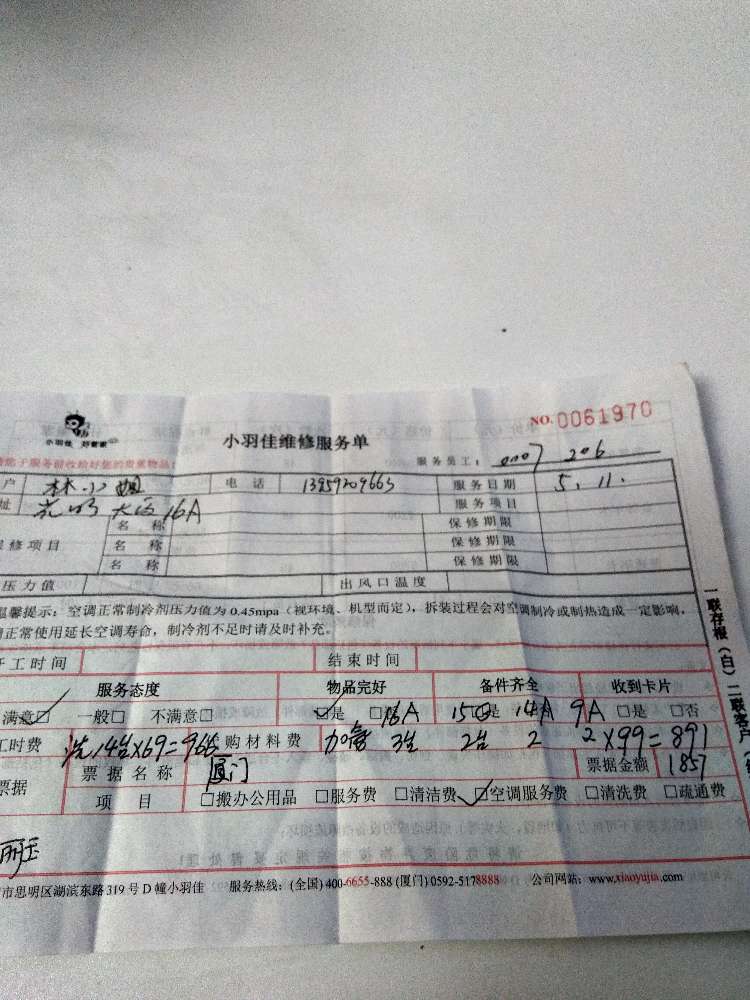 NO.0061970
小羽佳 好管家
小羽佳维修服务单
服务员工: 0007 206
请您于服务前收拾好您的贵重物品!
户 林小姐 电话 13959209665 服务日期 5.11.
址 光明大厦16A 服务项目
名称 保修期限
保修项目 名称 保修期限
名称 保修期限
压力值 出风口温度
温馨提示:空调正常制冷剂压力值为0.45mpa(视环境、机型而定),拆装过程会对空调制冷或制热造成一定影响,
正常使用延长空调寿命,制冷剂不足时请及时补充。
开工时间 结束时间
服务态度 物品完好 备件齐全 收到卡片
满意☑ 一般□ 不满意□ ☑是 □ 16A 15 □是 14A 9A □是 □否
工时费 洗14台X69=966 购材料费 加雪 3台 2台 2 2 X99=891
票据 票据名称 厦门 票据金额 1857
项目 □搬办公用品 □服务费 □清洁费 ☑空调服务费 □清洗费 □疏通费
市思明区湖滨东路319号D幢小羽佳 服务热线:(全国)400-6655-888 (厦门)0592-5178888 公司网站:www.xiaoyujia.com
一联存根(白)二联客户